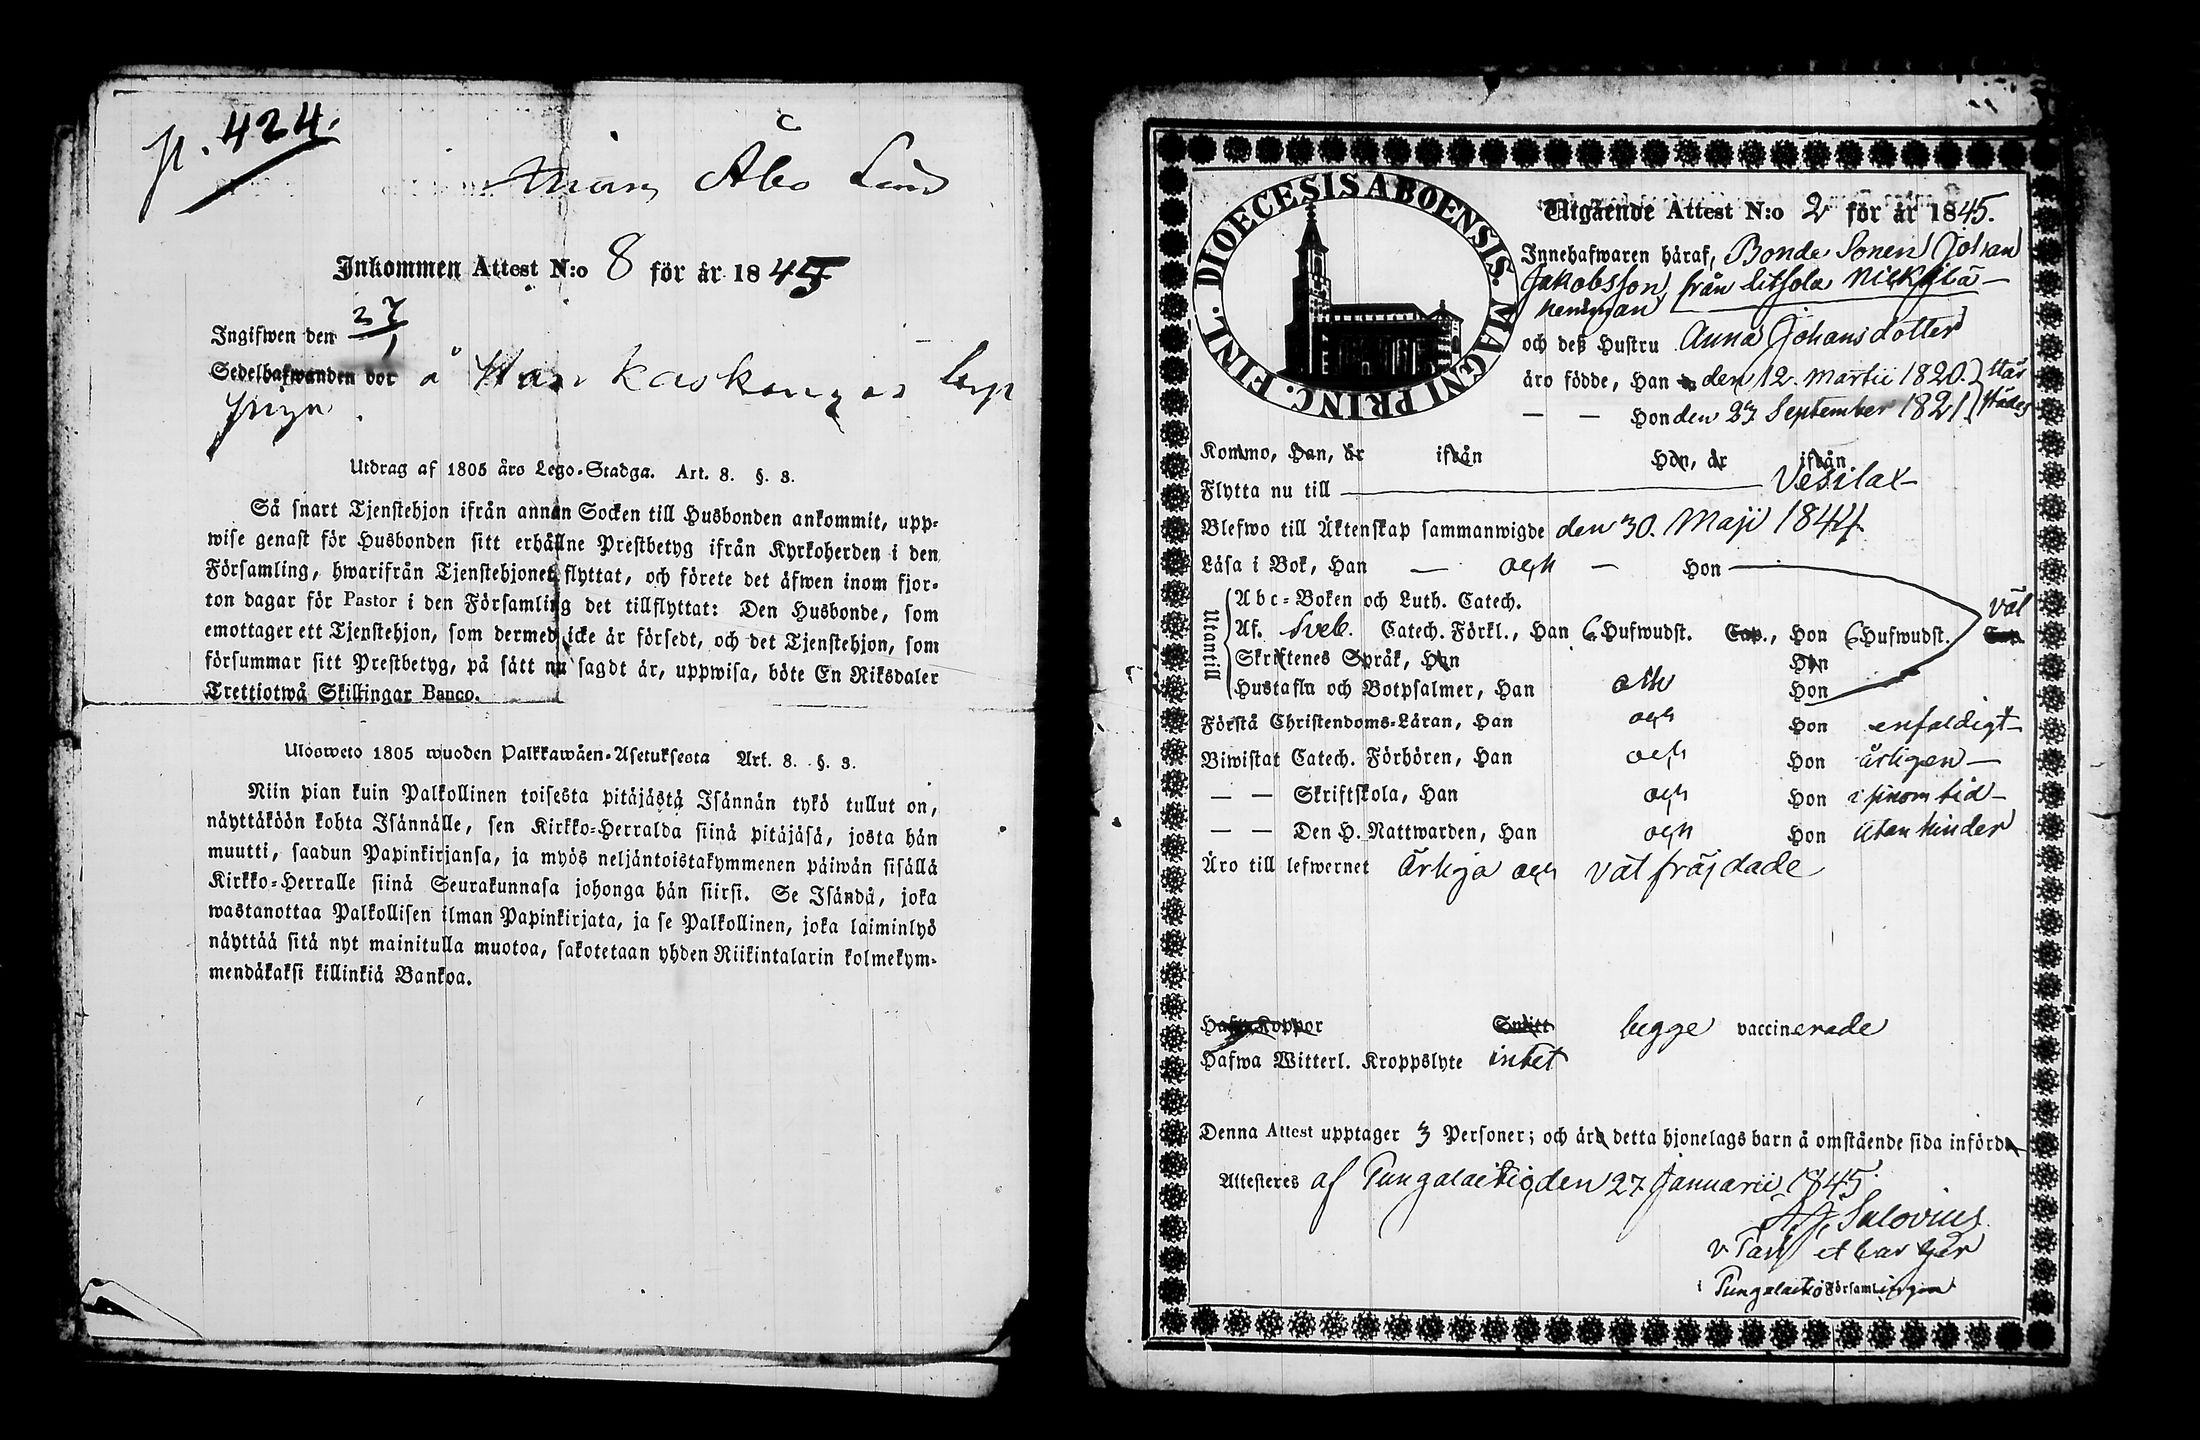 p. 424.
Åbo Län
Inkommen Attest N:o 8 för år 1845
Ingifwen den 27/1
Sedelhafwanden bor å
Utdrag af 1805 års Lego-Stadga. Art. 8. §. 3.
Så snart Tjenstehjon ifrån annan Socken till Husbonden ankommit, upp-
wise genast för Husbonden sitt erhållne Prestbetyg ifrån Kyrkoherden i den
Församling, hwarifrån Tjenstehjonet flyttat, och förete det äfwen inom fjor-
ton dagar för Pastor i den Församling det tillflyttat: Den Husbonde, som
emottager ett Tjenstehjon, som dermed icke är försedt, och det Tjenstehjon, som
försummar sitt Prestbetyg, på sätt nu sagdt är, uppwisa, böte En Riksdaler
Trettiotwå Skillingar Banco.
Ulosweto 1805 wuoden Palkkawäen-Asetuksesta Art. 8. §. 3.
Niin pian kuin Palkollinen toisesta pitäjästä Isännän tykö tullut on,
näyttäköön kohta Isännälle, sen Kirkko-Herralda siinä pitäjäsä, josta hän
muutti, saadun Papinkirjansa, ja myös neljäntoistakymmenen päiwän sisällä
Kirkko-Herralle siinä Seurakunnasa johonga hän siirsi. Se Isändä, joka
wastanottaa Palkollisen ilman Papinkirjata, ja se Palkollinen, joka laiminlyö
näyttää sitä nyt mainitulla muotoa, sakotetaan yhden Riikintalarin kolmekym-
mendäkaksi killinkiä Bankoa.
DIOECESIS ABOENSIS. MAGNI PRINC. FINL.
Utgående Attest N:o 2 för år 1845.
Innehafwaren häraf, Bonde Sonen Johan
Jakobsson från Litsola Nickilä
hemman
och deß Hustru Anna Johansdotter
äro födde, Han den 12. Martii 1820. Här
— — Hon den 23 September 1821 städes
Kommo, Han, är ifrån Hon, är ifrån
Flytta nu till Vesilax
Blefwo till Äktenskap sammanwigde den 30. Maji 1844
Läsa i Bok, Han — och — Hon
Utantill
Abc-Boken och Luth. Catech. väl
Af. Sveb. Catech. Förkl., Han 6 Hufwudst. Cap., Hon 6 Hufwudst. Cap.
Skriftenes Språk, Han Hon
Hustafla och Botpsalmer, Han och Hon
Förstå Christendoms-Läran, Han och Hon enfaldigt
Biwistat Catech. Förhören, Han och Hon årligen —
— — Skriftskola, Han och Hon i sinom tid —
— — Den H. Nattwarden, Han och Hon utan hinder
Äro till lefwernet Ärliga och välfräjdade
Hafwa Koppor Smitt begge vaccinerade
Hafwa Witterl. Kroppslyte intet
Denna Attest upptager 3 Personer; och äro detta hjonelags barn å omstående sida införda
Attesteres af Pungalaitio, den 27. Januarii 1845.
Salovius
v Past
i Pungalaitio Församlingen